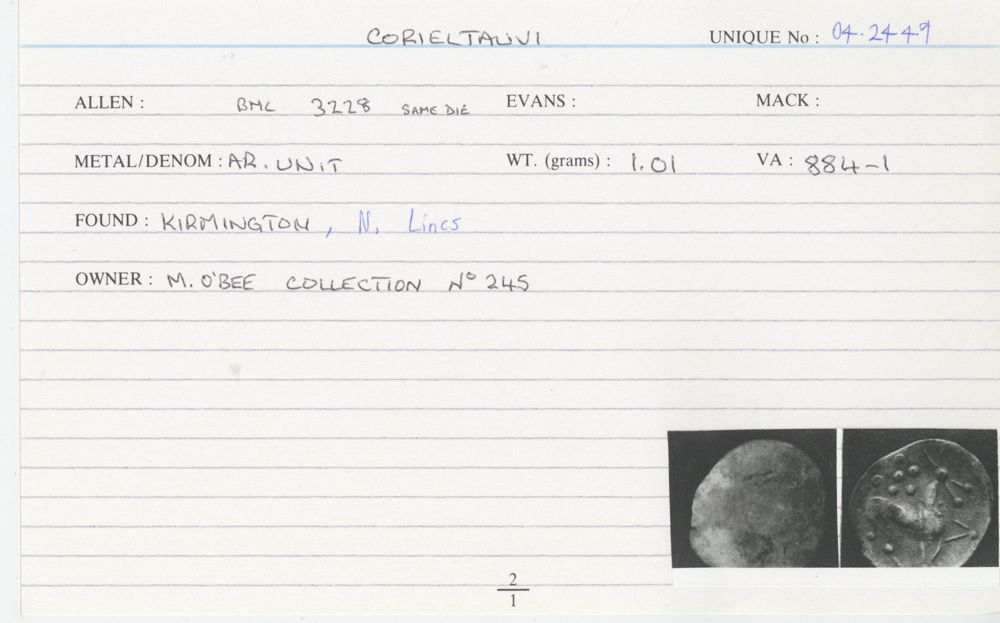 CORIELTAUVI UNIQUE No : 04.2449
ALLEN : BMC 3228 SAME DIE EVANS : MACK :
METAL/DENOM : AR. UNIT WT. (grams) : 1.01 VA : 884-1
FOUND : KIRMINGTON, N. Lincs
OWNER : M. O'BEE COLLECTION No 245
2
1